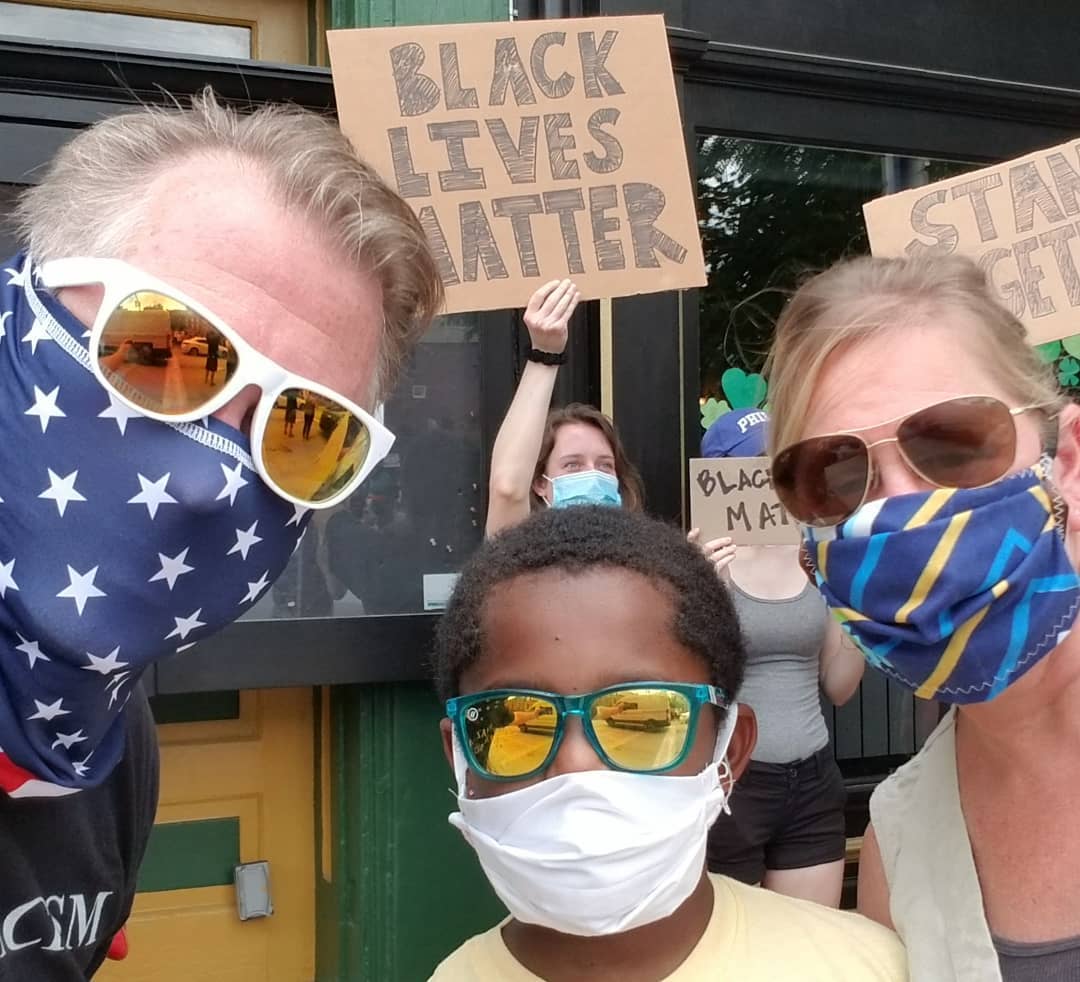 BLACK
LIVES
MATTER
STAN
GET
PHI
BLAC
MAT
CISM